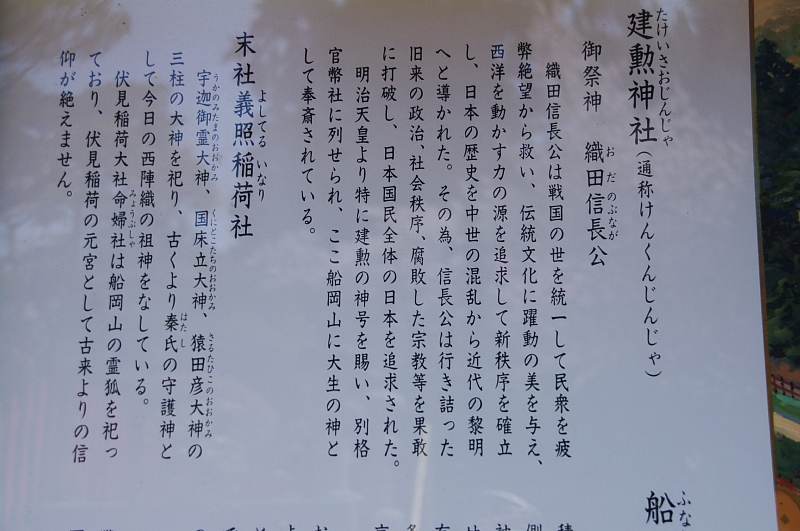 建勲神社（通称けんくんじんじゃ）
たけいさおじんじゃ
御祭神　織田信長公
おだのぶなが
織田信長公は戦国の世を統一して民衆を疲
弊絶望から救い、伝統文化に躍動の美を与え、
西洋を動かす力の源を追求して新秩序を確立
し、日本の歴史を中世の混乱から近代の黎明
へと導かれた。その為、信長公は行き詰った
旧来の政治、社会秩序、腐敗した宗教等を果敢
に打破し、日本国民全体の日本を追求された。
明治天皇より特に建勲の神号を賜い、別格
官幣社に列せられ、ここ船岡山に大生の神と
して奉斎されている。
末社義照稲荷社
よしてるいなり
宇迦御霊大神、国床立大神、猿田彦大神の
うかのみたまのおおかみ　くにとこたちのおおかみ　さるたひこのおおかみ
三柱の大神を祀り、古くより秦氏の守護神と
はたし
して今日の西陣織の祖神をなしている。
伏見稲荷大社命婦社は船岡山の霊狐を祀っ
みょうぶしゃ
ており、伏見稲荷の元宮として古来よりの信
仰が絶えません。
船
ふな